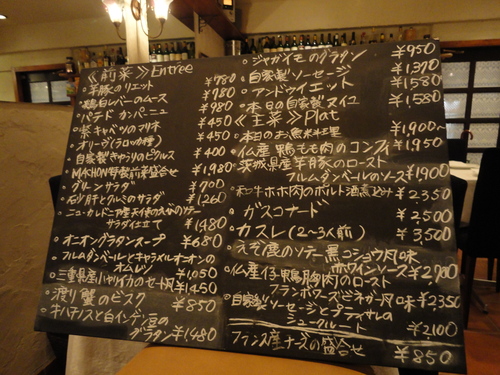 《前菜》Entrée
・羊豚のリエット ¥780
・鶏白レバーのムース ¥780
・パテド カンパーニュ ¥980
・紫キャベツのマリネ ¥450
・オリーブ(2〜3種) ¥450
・自家製きゅうりのピクルス ¥400
・MACHON野菜前菜盛合せ ¥1,980
・グリーンサラダ ¥700
・砂肝とクルミのサラダ ¥1260
・ニューカレドニア産天使の海老のソテー
サラダ仕立て ¥1480
・オニオングラタンスープ ¥680
・フルムダンベールとキャラメルオニオンの
オムレツ ¥1,050
・三重県産小ヤリイカのセート風 ¥1450
・渡り蟹のビスク ¥850
・ホタテと白インゲン豆の
グラタン ¥1,480
・ジャガイモのグラタン ¥950
・自家製ソーセージ ¥1,370
・アンドゥイエット ¥1580
・本日の自家製 ¥1,580
《主菜》Plat
・本日のお魚料理 ¥1,900〜
・仏産鴨もも肉のコンフィ ¥1,950
・茨城県産羊豚のロースト
フルムダンベールのソース ¥1900
・和牛ホホ肉のポルト酒煮込み ¥2350
・ガスコナード ¥2500
・カスレ(2〜3人前) ¥3,500
・えぞ鹿のソテー黒コショウ風味
赤ワインソース ¥2,700
・仏産仔鴨胸肉のロースト
フランボワーズビネガー風味 ¥2350
・自家製ソーセージとプティサレの
シュークルート ¥2100
フランス産チーズの盛合せ ¥850